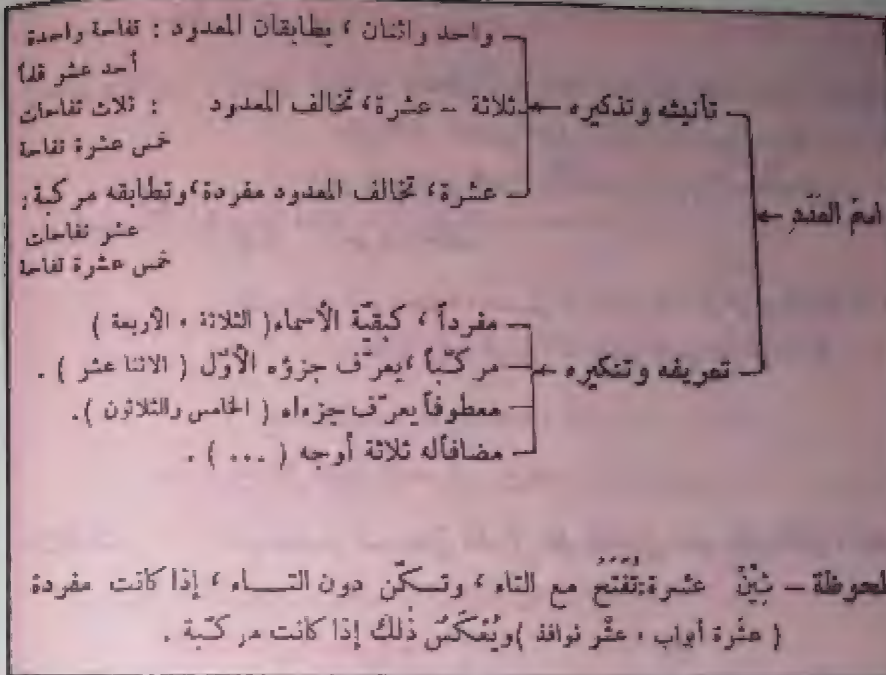 واحد واثنان ، يطابقان المعدود : تفاحة واحدة
أحد عشر قلماً
تأنيثه وتذكيره
ثلاثة – عشرة، تخالف المعدود : ثلاث تفاحات
خمس عشرة تفاحة
عشرة، تخالف المعدود مفردة، وتطابقه مركبة:
عشر تفاحات
خمس عشرة تفاحة
اسم العَدَدِ
تعريفه وتنكيره
مفرداً ، كبقيّة الأسماء ( الثلاثة ، الأربعة )
مركّباً ، يعرّف جزؤه الأوّل ( الاثنا عشر ) .
معطوفاً يعرّف جزءاه ( الخامس والثلاثون ) .
مضافاً له ثلاثة أوجه ( ... ) .
لحوظة – شِيْنُ عشرة: تُفْتَحُ مع التاء ، وتسكّن دون التـــاء ، إذا كانت مفردة
( عشَرة أبواب ، عشْر نوافذ ) ويُعْكَسُ ذٰلك إذا كانت مركّبة .